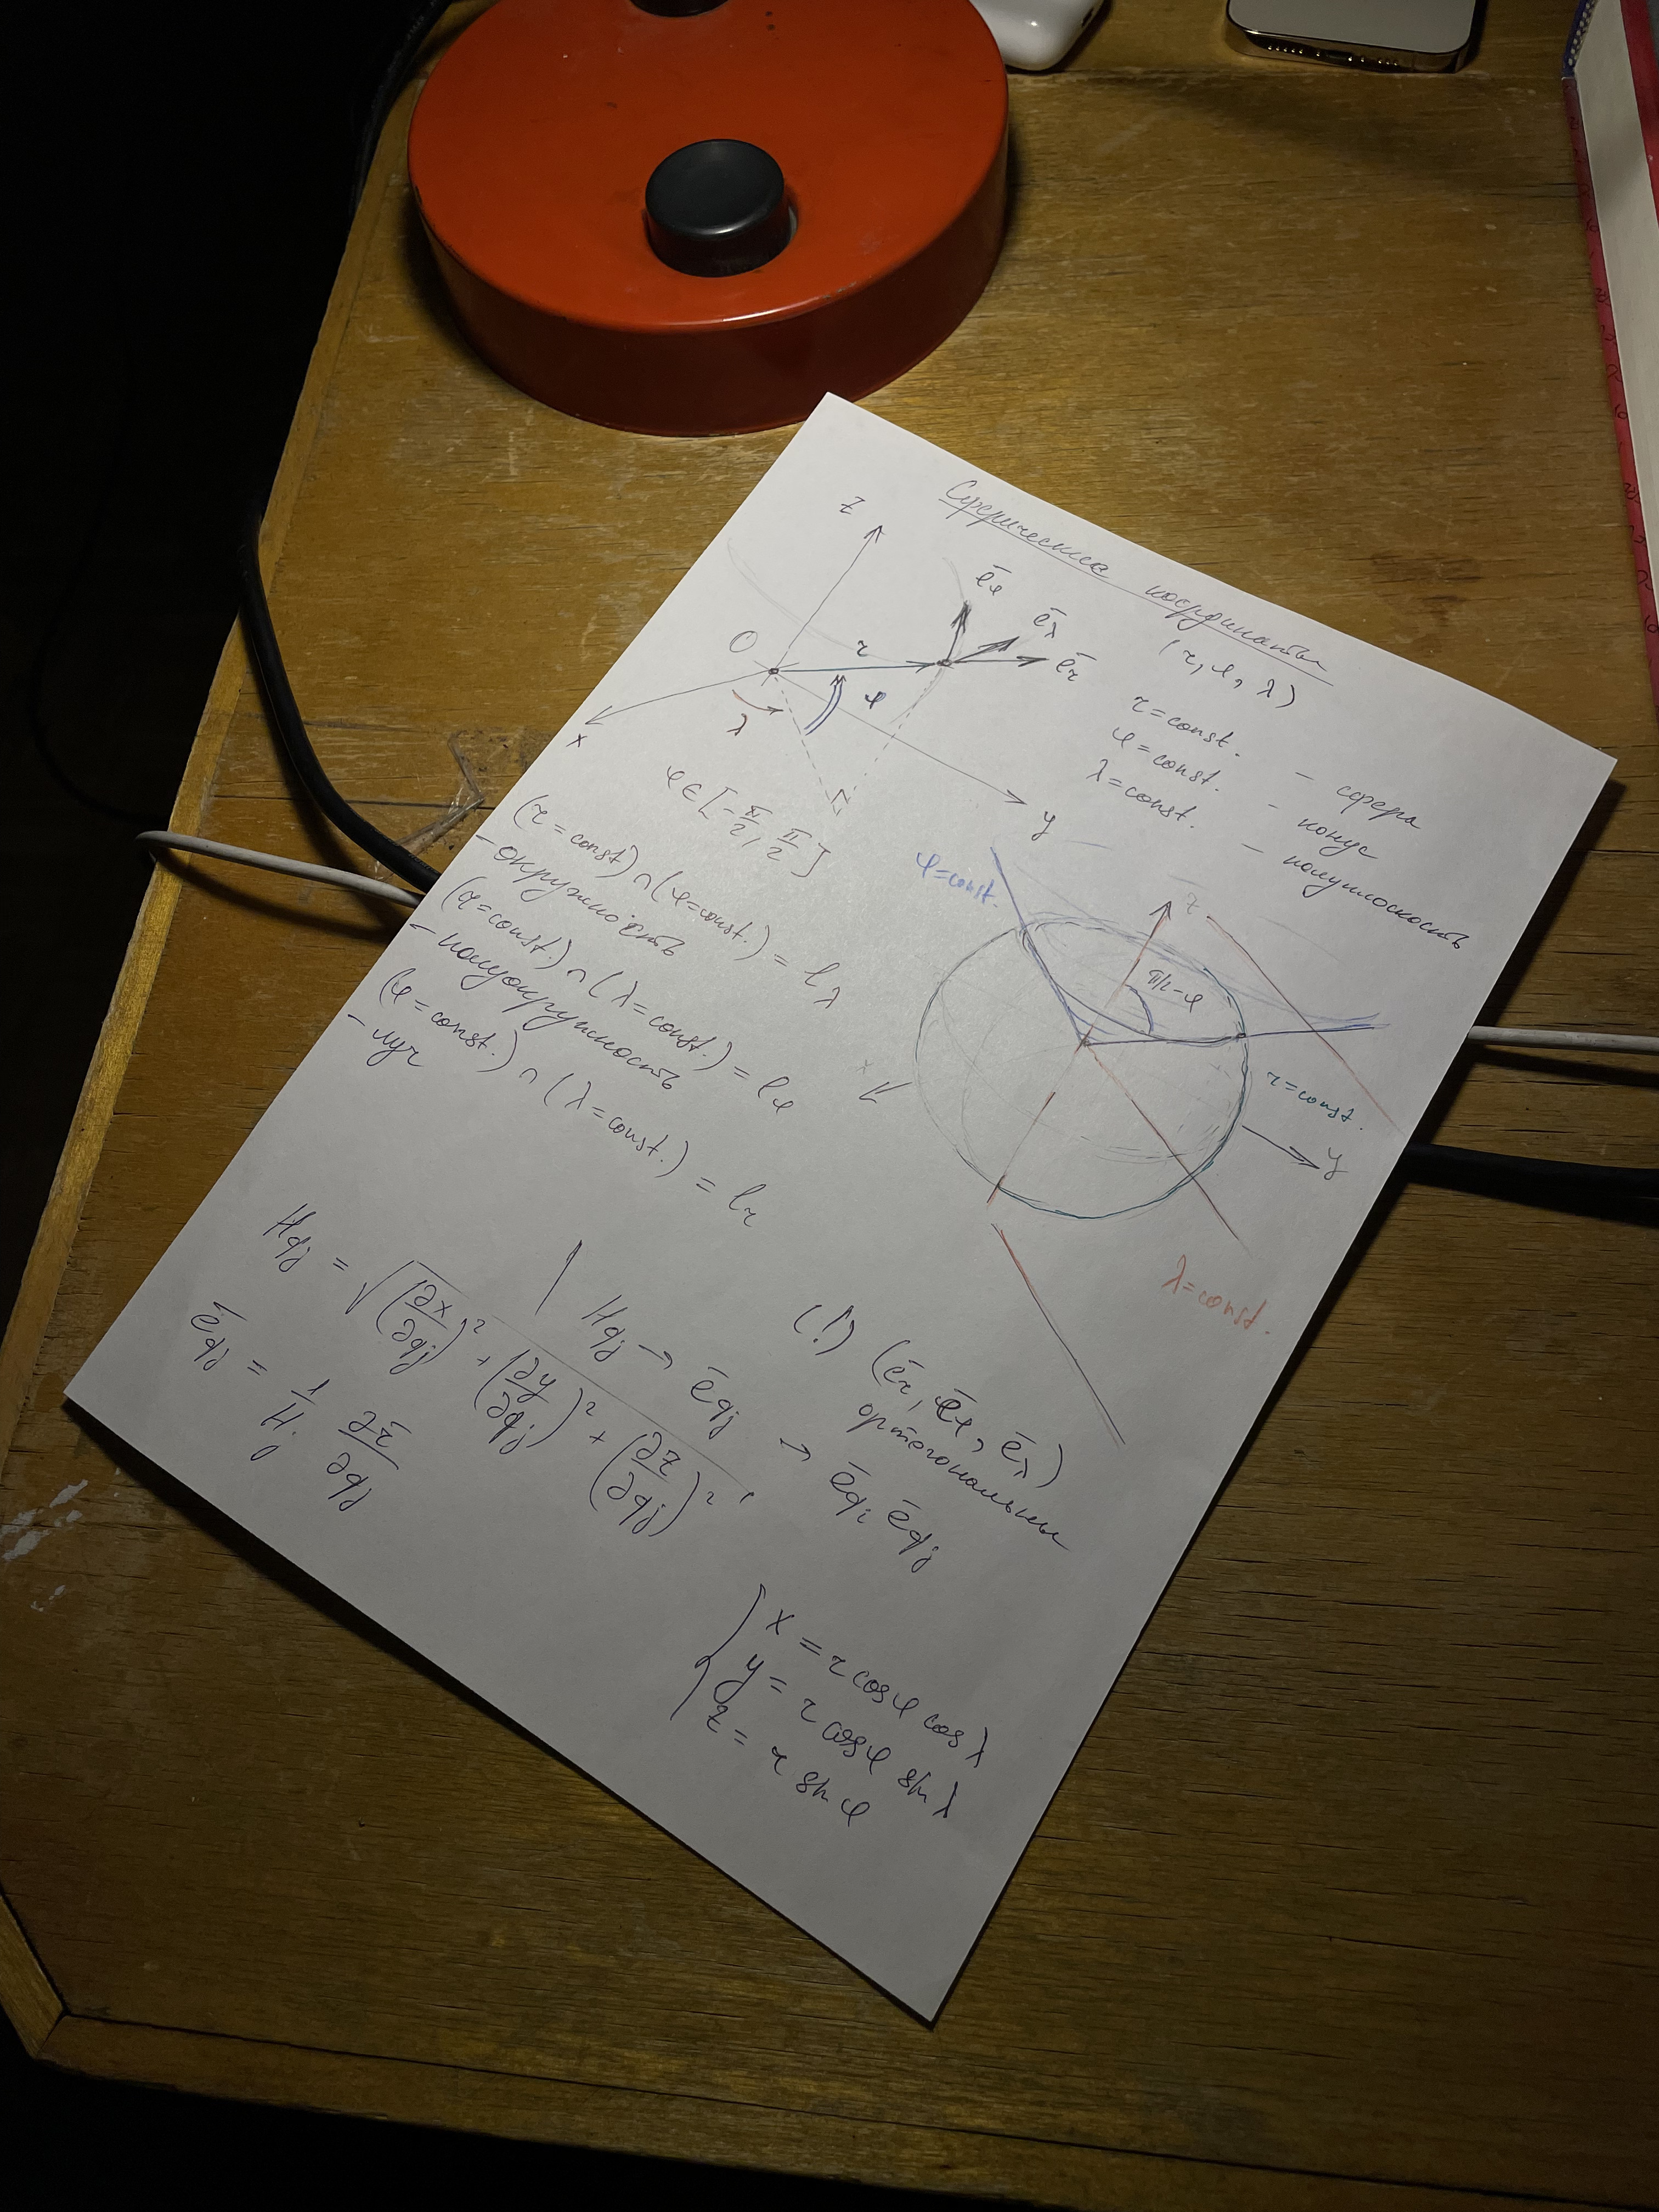 Сферические координаты
(r, φ, λ)
z
ēφ
ēλ
ēr
O
r
φ
λ
x
y
r = const. – сфера
φ = const. – конус
λ = const. – полуплоскость
φ ∈ [-π/2, π/2]
(r = const) ∩ (φ = const.) = lλ
– окружность
(r = const.) ∩ (λ = const.) = lφ
– полуокружность
(φ = const.) ∩ (λ = const.) = lr
– луч
φ = const.
z
π/2 - φ
x
r = const.
y
λ = const.
(!) (ēr, ēφ, ēλ)
ортогональны
Hqj → ēqj → ēqi ēqj
Hqj = √((∂x/∂qj)² + (∂y/∂qj)² + (∂z/∂qj)²)
ēqj = 1/Hj ∂r̄/∂qj
x = r cosφ cosλ
y = r cosφ sinλ
z = r sinφ